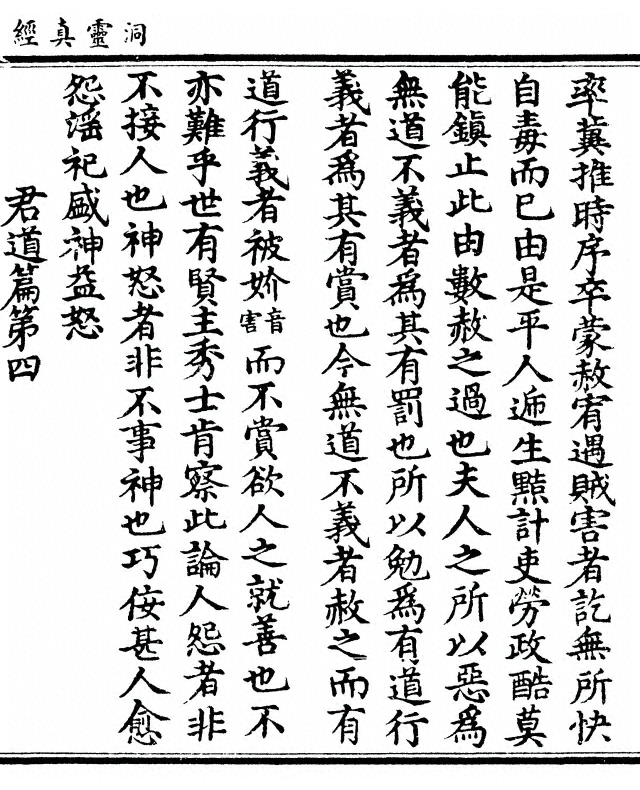 洞靈真經
率冀推時序卒蒙赦宥遇賊害者訖無所快
自毒而已由是平人遞生黠計吏勞政酷莫
能鎮止此由數赦之過也夫人之所以惡爲
無道不義者爲其有罰也所以勉爲有道行
義者爲其有賞也今無道不義者赦之而有
道行義者被妎音害而不賞欲人之就善也不
亦難乎世有賢主秀士肯察此論人怨者非
不接人也神怒者非不事神也巧佞甚人愈
怨滛祀盛神益怒
君道篇第四